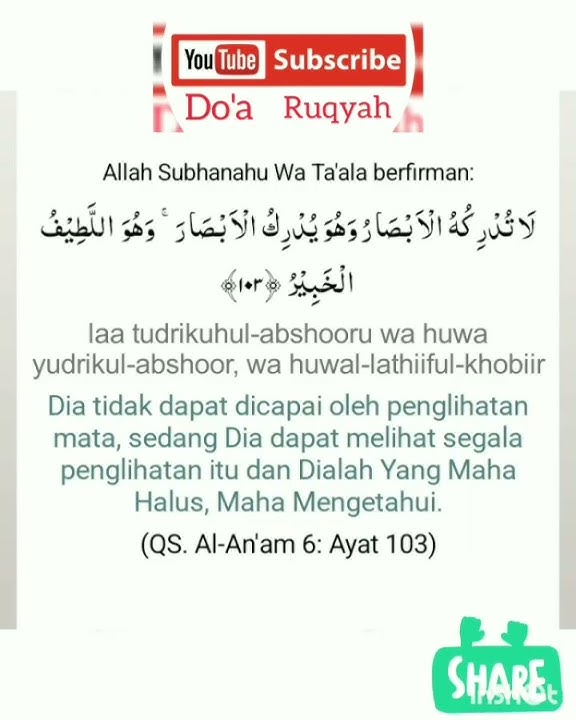 YouTube Subscribe
Do'a Ruqyah
Allah Subhanahu Wa Ta'ala berfirman:
لَا تُدْرِكُهُ الْاَبْصَارُ وَهُوَ يُدْرِكُ الْاَبْصَارَ ۚ وَهُوَ اللَّطِيْفُ
الْخَبِيْرُ ﴿١٠٣﴾
laa tudrikuhul-abshooru wa huwa
yudrikul-abshoor, wa huwal-lathiiful-khobiir
Dia tidak dapat dicapai oleh penglihatan
mata, sedang Dia dapat melihat segala
penglihatan itu dan Dialah Yang Maha
Halus, Maha Mengetahui.
(QS. Al-An'am 6: Ayat 103)
SHARE